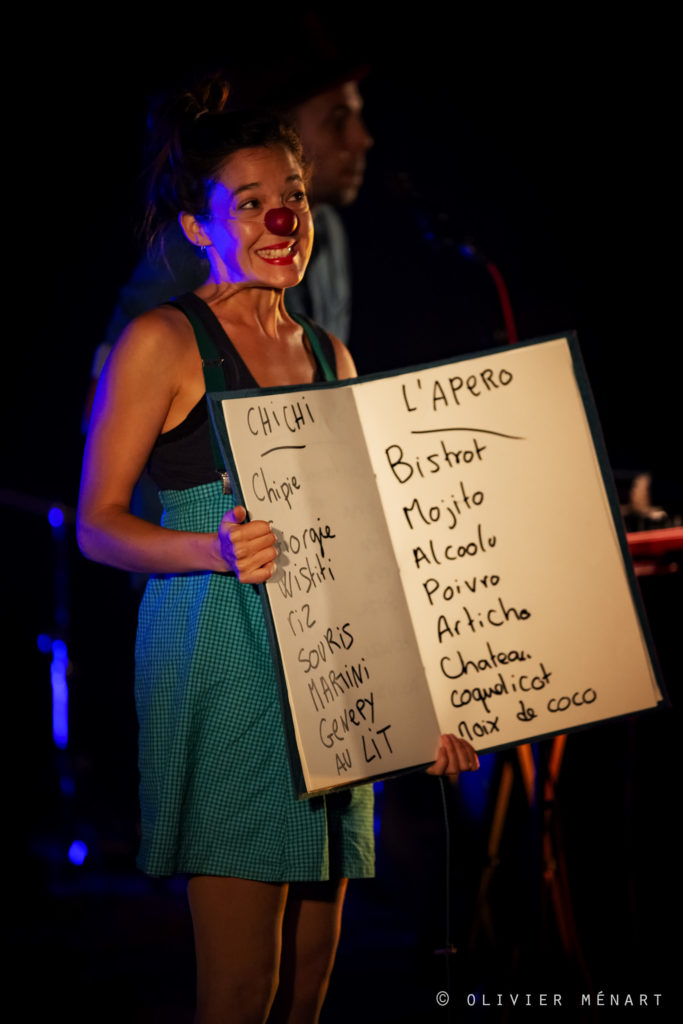 CHICHI
Chipie
wistiti
riz
SOURIS
MARTiNi
GENEPY
AU LiT
L'APERO
Bistrot
Mojito
Alcoolo
Poivro
Articho
Chateau
coquelicot
noix de coco
© OLIVIER MÉNART